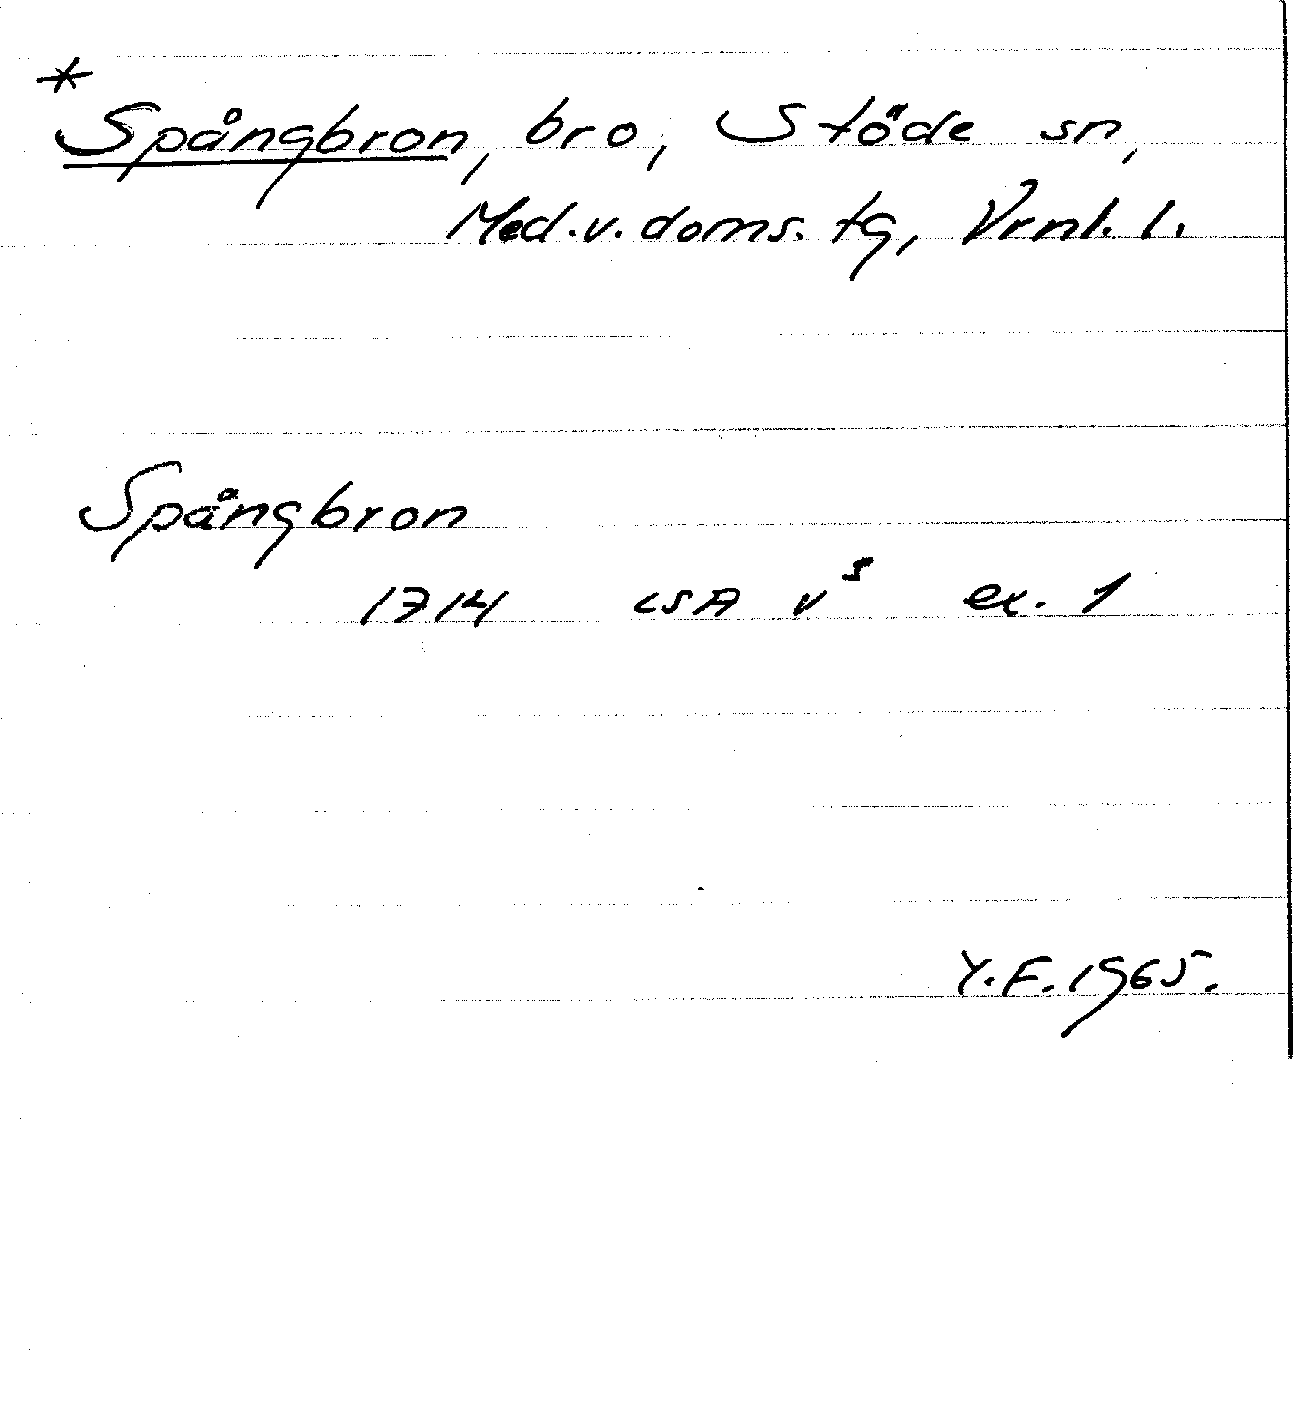 *
Spångbron, bro, Stöde sn,
Med.v.doms.tg, Vrnl. l.
Spångbron
1714 LSA v⁵ ex. 1
Y.F. 1965.